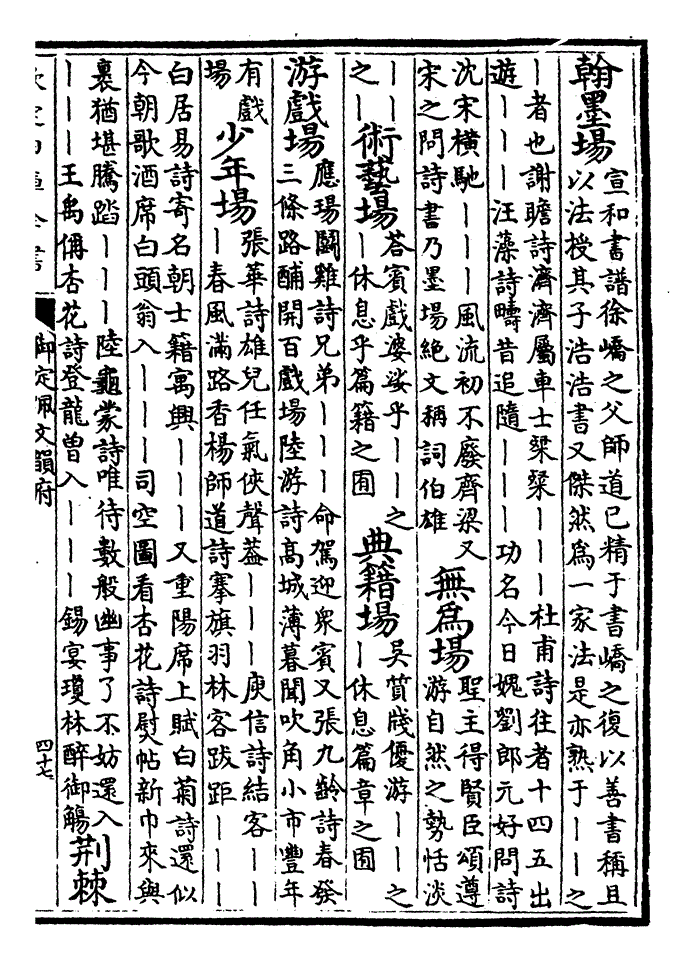 翰墨場
宣和書譜徐嶠之父師道已精于書嶠之復以善書稱且
以法授其子浩浩書又傑然為一家法是亦熟于丨丨之
丨者也謝瞻詩濟濟屬車士粲粲丨丨丨杜甫詩往者十四五出
遊丨丨丨汪藻詩疇昔追隨丨丨丨功名今日媿劉郎元好問詩
沈宋横馳丨丨丨風流初不廢齊梁又
宋之問詩書乃墨場絶文稱詞伯雄
無為場
聖主得賢臣頌遵
游自然之勢恬淡
丨丨
之丨
術藝場
荅賓戲婆娑乎丨丨丨之
丨休息乎篇籍之囿
典籍場
吳質牋優游丨丨之
丨休息篇章之囿
游戲場
應瑒鬭雞詩兄弟丨丨丨命駕迎衆賓又張九齡詩春發
三條路酺開百戲場陸游詩高城薄暮聞吹角小市豐年
有戲
場
少年場
張華詩雄兒任氣俠聲葢丨丨丨庾信詩結客丨丨
丨春風滿路香楊師道詩搴旗羽林客跋距丨丨丨
白居易詩寄名朝士籍寓興丨丨丨又重陽席上賦白菊詩還似
今朝歌酒席白頭翁入丨丨丨司空圖看杏花詩熨帖新巾來與
裹猶堪騰踏丨丨丨陸龜蒙詩唯待數般幽事了不妨還入
丨丨丨王禹偁杏花詩登龍曽入丨丨丨錫宴瓊林醉御觴
荆棘
欽定四庫全書
御定佩文韻府
四十七